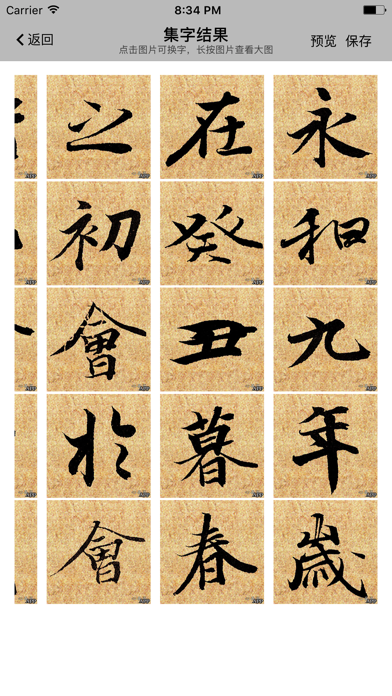 Carrier
8:34 PM
返回
集字结果
点击图片可换字，长按图片查看大图
预览
保存
永和九年歲
在癸丑暮春
之初會於會